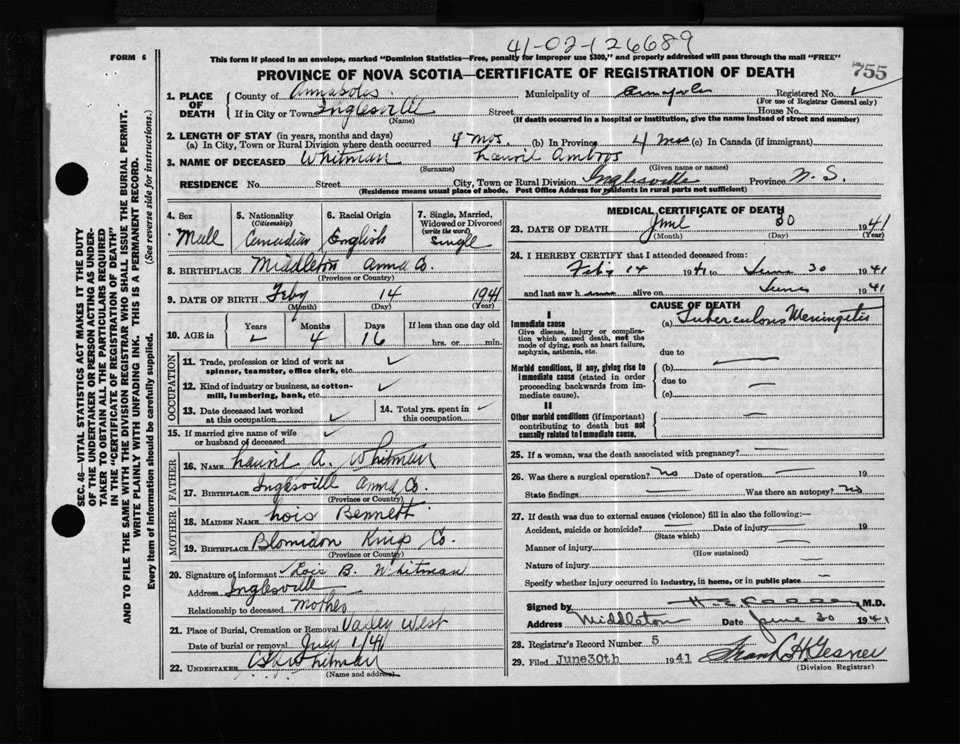 41-02-126689
FORM 6
This form if placed in an envelope, marked "Dominion Statistics—Free, penalty for improper use $300," and properly addressed will pass through the mail "FREE"
PROVINCE OF NOVA SCOTIA—CERTIFICATE OF REGISTRATION OF DEATH
755
1. PLACE OF DEATH County of Annapolis Municipality of Annapolis Registered No.
(For use of Registrar General only)
If in City or Town Inglesville Street House No.
(Name) (If death occurred in a hospital or institution, give the name instead of street and number)
2. LENGTH OF STAY (in years, months and days)
(a) In City, Town or Rural Division where death occurred 4 mos. (b) In Province 4 mos (c) In Canada (if immigrant)
3. NAME OF DECEASED Whitman Lauril Ambros
(Surname) (Given name or names)
RESIDENCE No. Street City, Town or Rural Division Inglesville Province N. S.
(Residence means usual place of abode. Post Office Address for residents in rural parts not sufficient)
4. Sex 5. Nationality (Citizenship) 6. Racial Origin 7. Single, Married, Widowed or Divorced (write the word)
Male Canadian English Single
8. BIRTHPLACE Middleton Anna Co.
(Province or Country)
9. DATE OF BIRTH Feby 14 1941
(Month) (Day) (Year)
10. AGE in Years Months Days If less than one day old
4 16 hrs. or min.
OCCUPATION
11. Trade, profession or kind of work as spinner, teamster, office clerk, etc. ✓
12. Kind of industry or business, as cotton-mill, lumbering, bank, etc. ✓
13. Date deceased last worked at this occupation ✓ 14. Total yrs. spent in this occupation ✓
15. If married give name of wife or husband of deceased ✓
FATHER
16. NAME Lauril A. Whitman
17. BIRTHPLACE Inglesville Anna Co.
(Province or Country)
MOTHER
18. MAIDEN NAME Lois Bennett
19. BIRTHPLACE Blomidon Kings Co.
(Province or Country)
20. Signature of informant Lois B. Whitman
Address Inglesville
Relationship to deceased Mother
21. Place of Burial, Cremation or Removal Valley West
Date of burial or removal July 1/41
22. UNDERTAKER Whitman
(Name and address)
MEDICAL CERTIFICATE OF DEATH
23. DATE OF DEATH June 30 1941
(Month) (Day) (Year)
24. I HEREBY CERTIFY that I attended deceased from:
Feby 14 1941 to June 30 1941
and last saw h alive on June 1941
CAUSE OF DEATH
I
Immediate cause (a) Tuberculous Meningitis
Give disease, injury or complication which caused death, not the mode of dying, such as heart failure, asphyxia, asthenia, etc.
due to
Morbid conditions, if any, giving rise to immediate cause (stated in order proceeding backwards from immediate cause). (b) —
due to
(c) —
II
Other morbid conditions (if important) contributing to death but not causally related to immediate cause. —
25. If a woman, was the death associated with pregnancy? —
26. Was there a surgical operation? No Date of operation — 19
State findings — Was there an autopsy? No
27. If death was due to external causes (violence) fill in also the following:—
Accident, suicide or homicide? — Date of injury — 19
(State which)
Manner of injury —
(How sustained)
Nature of injury —
Specify whether injury occurred in industry, in home, or in public place —
Signed by M.D.
Address Middleton Date June 30 1941
28. Registrar's Record Number 5
29. Filed June30th 1941 Frank H Gesner
(Division Registrar)
SEC. 46—VITAL STATISTICS ACT MAKES IT THE DUTY
OF THE UNDERTAKER OR PERSON ACTING AS UNDER-
TAKER TO OBTAIN ALL THE PARTICULARS REQUIRED
IN THE "CERTIFICATE OF REGISTRATION OF DEATH"
AND TO FILE THE SAME WITH THE DIVISION REGISTRAR WHO SHALL ISSUE THE BURIAL PERMIT.
WRITE PLAINLY WITH UNFADING INK. THIS IS A PERMANENT RECORD.
Every item of information should be carefully supplied. (See reverse side for instructions.)